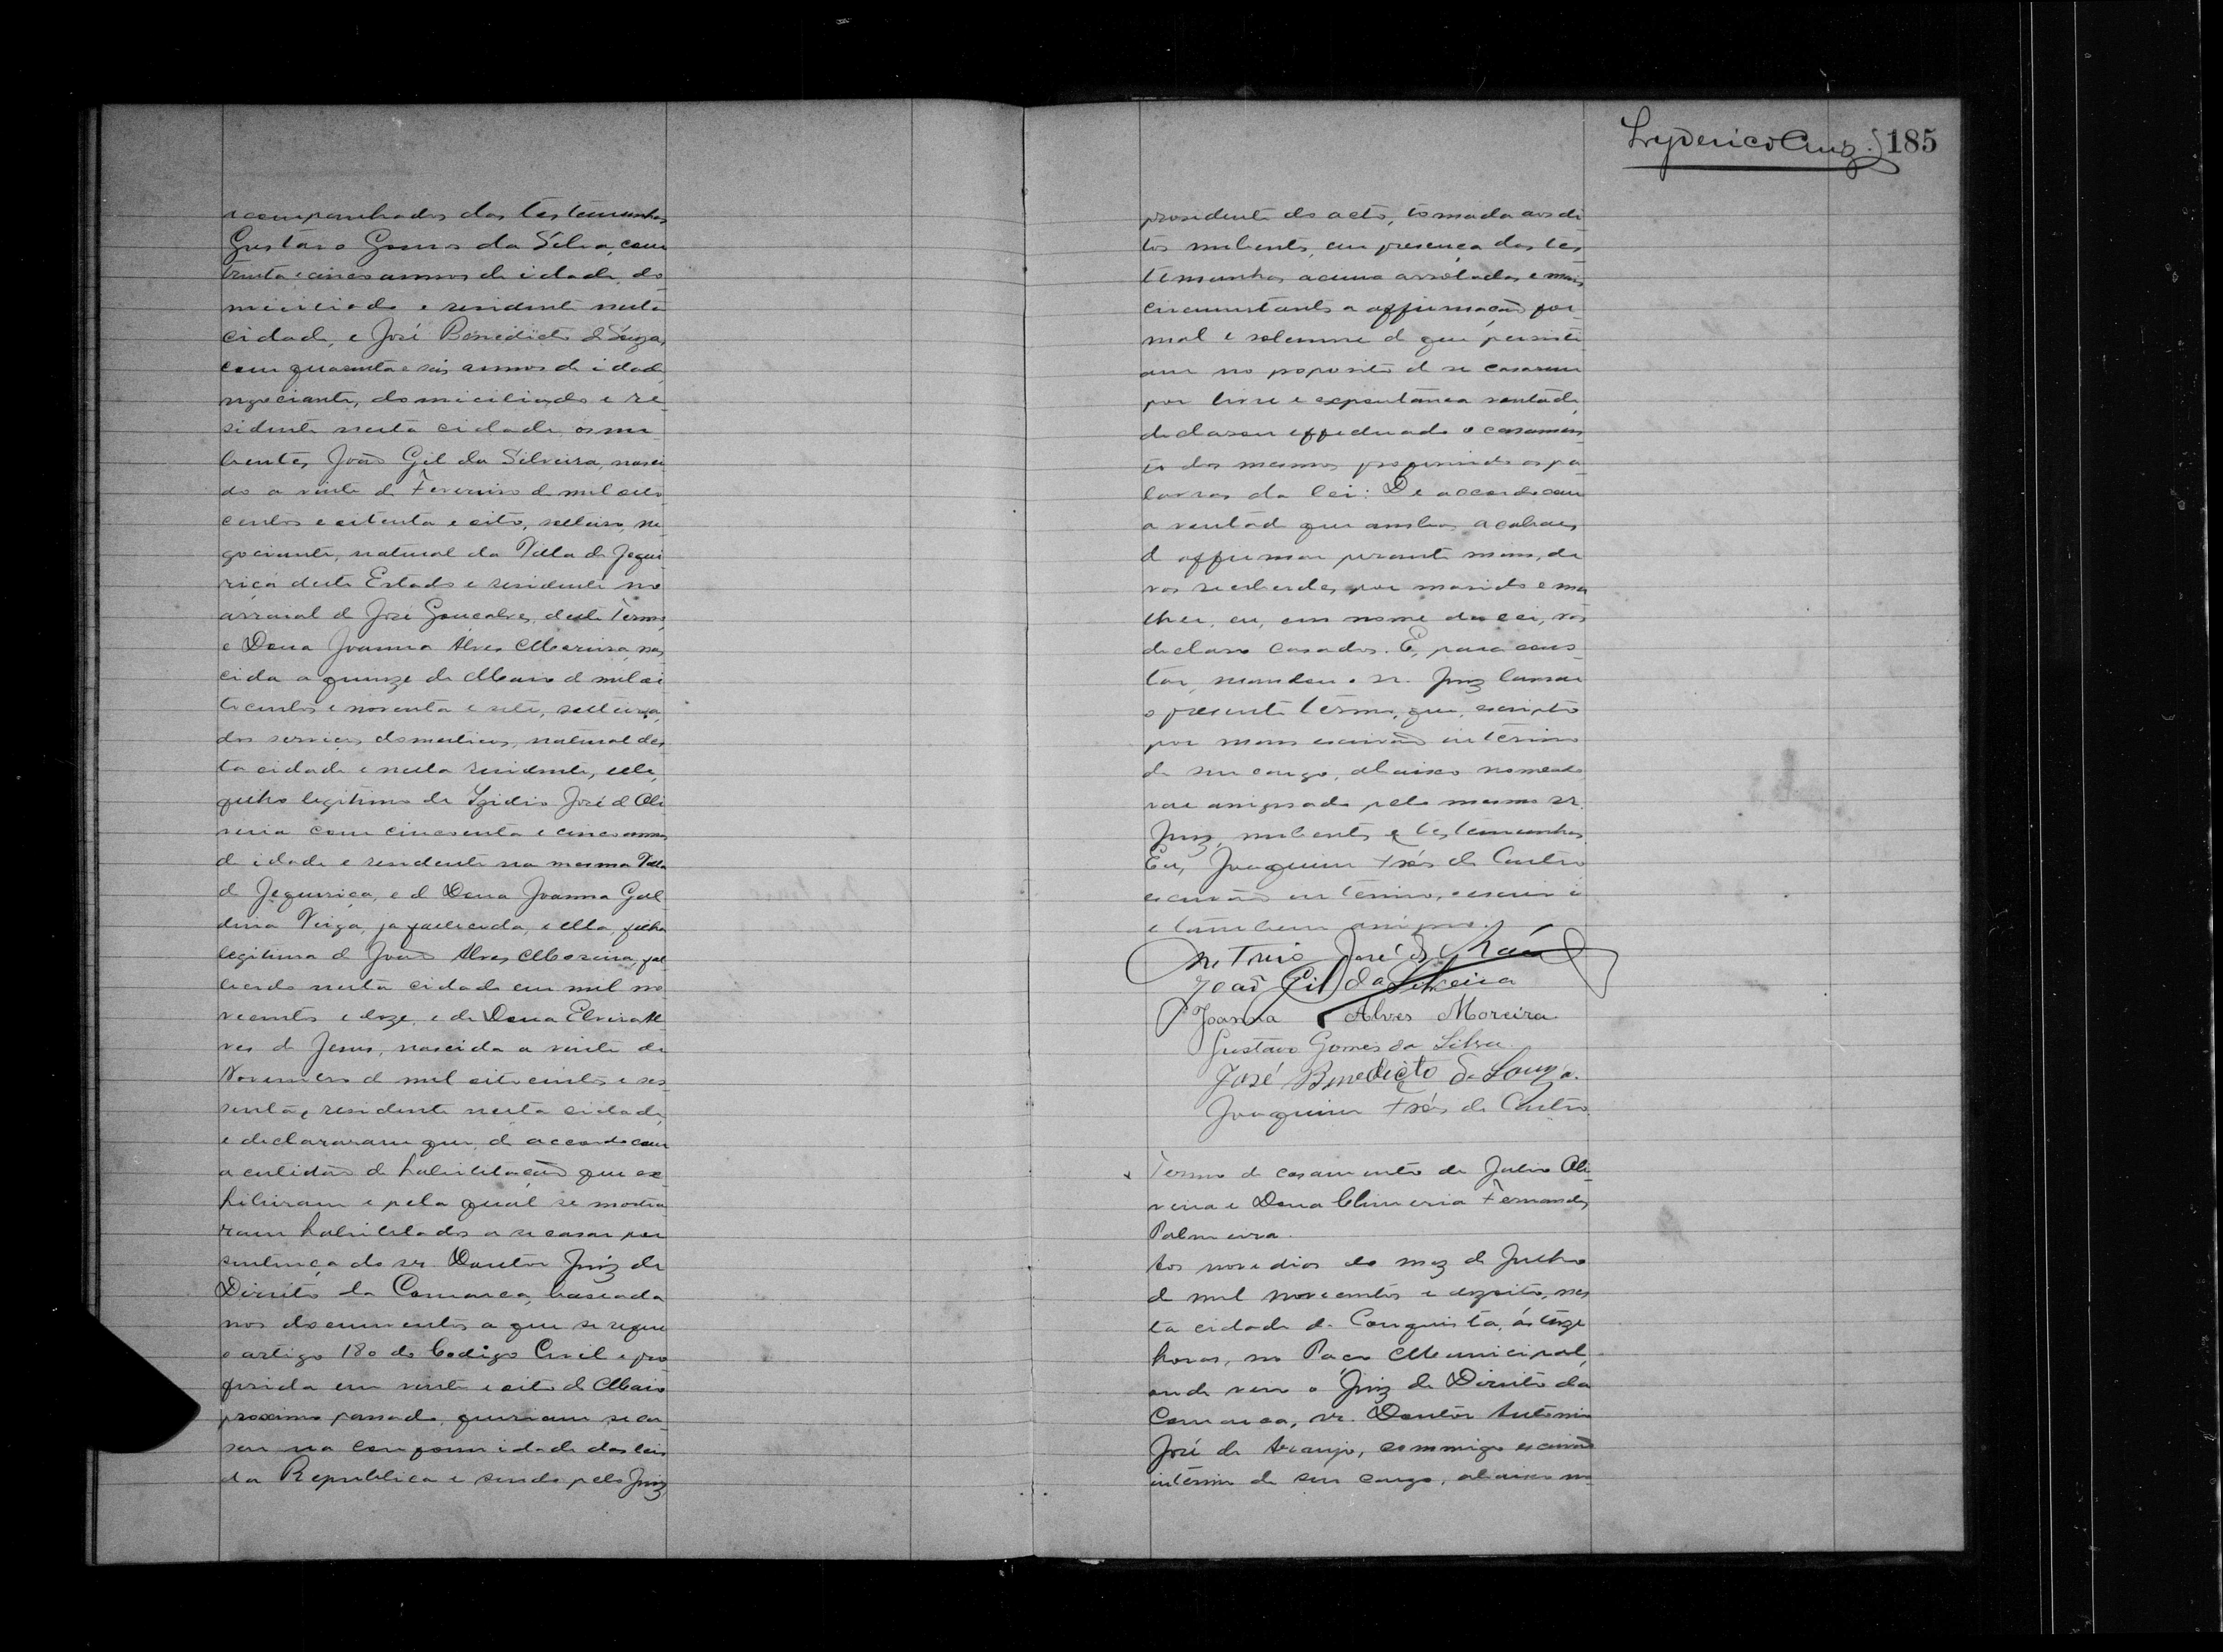 acompanhados das testemunhas
Gustavo Gomes da Silva, com
trinta e cinco annos de idade, do
miciliado e residente nesta
cidade, e José Benedicto de Souza,
com quarenta e seis annos de idade
negociante, domiciliado e re-
sidente nesta cidade, os nu-
bentes, João Gil da Silveira, nasci
do a vinte de Fevereiro de mil oito
centos e oitenta e oito, solteiro, ne
gociante, natural da Villa de Jequi
riçá deste Estado e residente no
arraial de José Gonçalves, deste Termo,
e Dona Joanna Alves Moreira, nas
cida a quinze de Maio de mil oi
tocentos e noventa e sete, solteira,
dos serviços domesticos, natural des
ta cidade e nesta residente, elle,
filho legitimo de Igidio José de Oli
veira com cincoenta e cinco annos
de idade e residente na mesma Villa
de Jequiriçá, e de Dona Joanna Gal
dina Veiga, ja fallecida, e ella, filha
legitima de João Alves Moreira, fal
lecido nesta cidade em mil no
vecentos e doze, e de Dona Elvira Al
ves de Jesus, nascida a vinte de
Novembro de mil oitocentos e ses
senta, residente nesta cidade,
e declararam que, de accordo com
a certidão de habilitação que ex
hibiram e pela qual se mostra
ram habilitados a se casar por
sentença do sr. Doutor Juiz de
Direito da Comarca, baseada
nos documentos a que se refere
o artigo 180 do Codigo Civil e pro
ferida em vinte e oito de Maio
proximo passado, queriam se ca
sar na conformidade das leis
da Republica e sendo pelo Juiz,
Lyderico Cruz. 185
presidente do acto, tomada aos di
tos nubentes, em presença das tes
temunhas acima arroladas e mais
circumstantes a affirmação for-
mal e solemne de que persisti
am no proposito de se casarem
por livre e expontanea vontade,
declarou effectuado o casamen
to dos mesmos proferindo as pa
lavras da lei: De accordo com
a vontade que ambos acabaes
de affirmar perante mim, de
vos receberdes por marido e mu
lher, eu, em nome da lei, vos
declaro casados. E, para cons-
tar, mandou o sr. Juiz lavrar
o presente termo, que, escripto
por mim escrivão interino
de seu cargo, abaixo nomeado
vae assignado pelo mesmo sr.
Juiz, nubentes e testemunhas.
Eu, Joaquim Fróes de Castro
escrivão interino, escrevi e
e tambem assigno.
Antonio José de Araujo
João Gil da Silveira
Joanna Alves Moreira
Gustavo Gomes da Silva
José Benedicto de Souza.
Joaquim Fróes de Castro
Termo de casamento de Julio Oli-
veira e Dona Fernandes
Palmeira.
Aos nove dias do mez de Julho
de mil novecentos e dezoito, nes
ta cidade de Conquista, ás treze
horas, no Paço Municipal,
onde veio o Juiz de Direito da
Comarca, sr. Doutor Antonio
José de Araujo, commigo escrivão
interino de seu cargo, abaixo no-